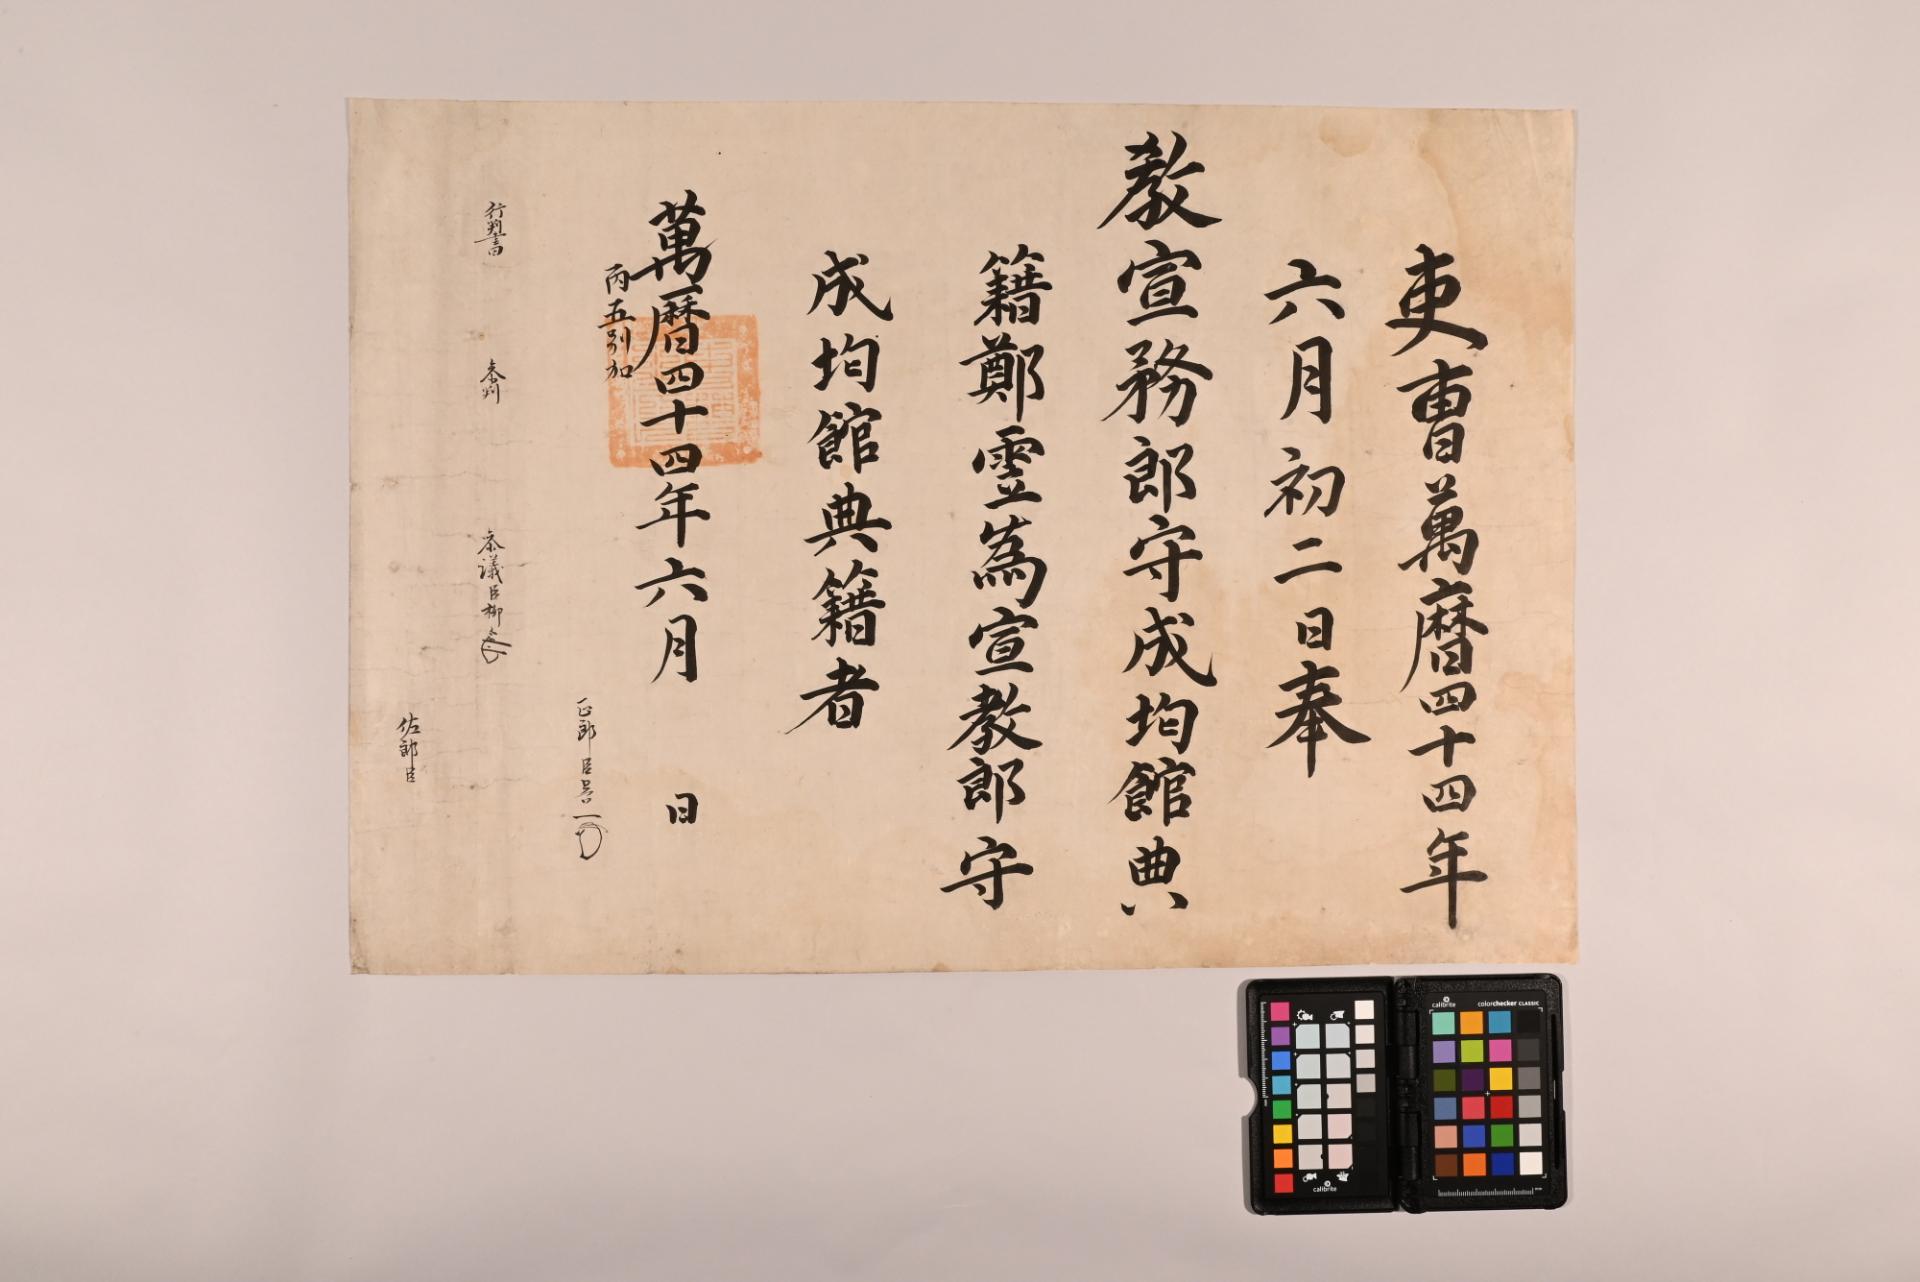 吏曹萬曆四十四年
六月初二日奉
教宣務郎守成均館典
籍鄭霊為宣教郎守
成均館典籍者
萬曆四十四年六月 日
丙五別加
正郎臣 一
行判書 参判 参議臣柳
佐郎臣
calibrite
calibrite colorchecker CLASSIC